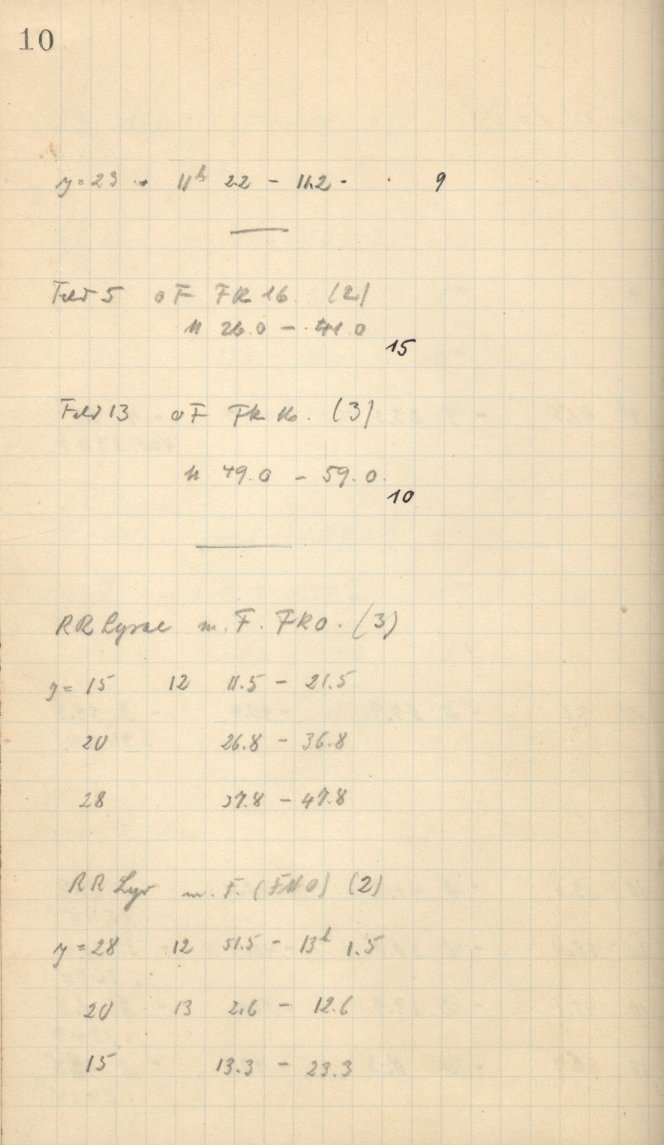 10
y = 23 11h 2.2 - 11.2 9
Feld 5 oF FK 16. (2)
11 26.0 - 41.0
15
Feld 13 oF FK 16. (3)
11 49.0 - 59.0
10
RR Lyrae m. F. FK0. (3)
y = 15 12 11.5 - 21.5
20 26.8 - 36.8
28 37.8 - 47.8
RR Lyr m. F. (2)
y = 28 12 51.5 - 13h 1.5
20 13 2.6 - 12.6
15 13.3 - 23.3